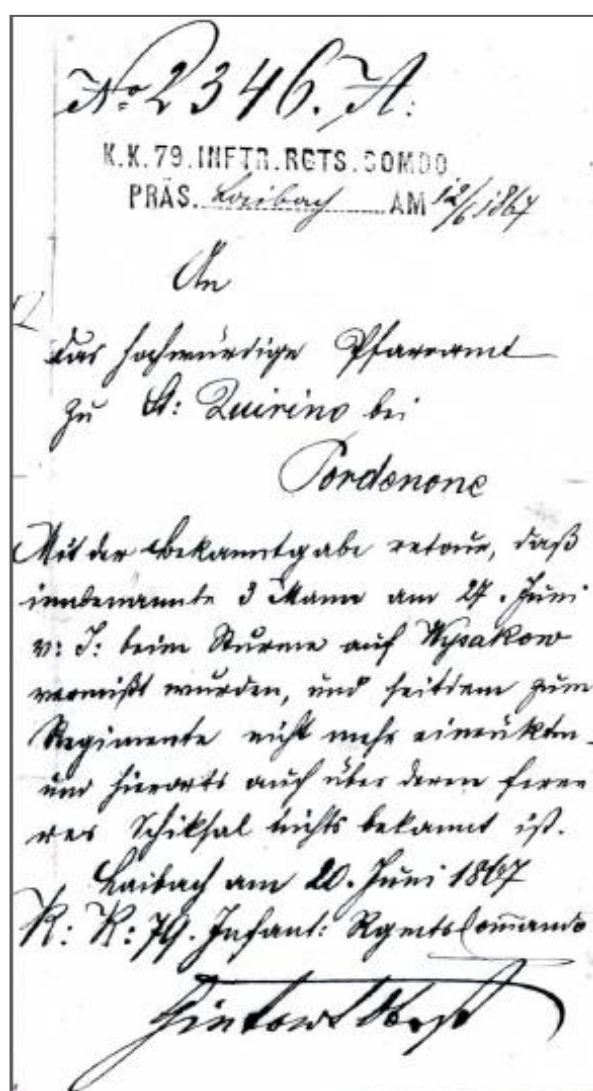 No 2346. A:
K.K. 79. INFTR. RGTS. COMDO
PRÄS. Laibach AM 12/6 1867
An
das hochwürdige Pfarramt
zu St: Quirino bei
Pordenone
Mit der Bekanntgabe retour, daß
innbenannte 3 Mann am 27. Juni
v: J: beim Sturme auf Wysakow
vermißt wurden, und seitdem zum
Regimente nicht mehr einrükten
und hierorts auch über deren fere
res Schiksal nichts bekannt ist.
Laibach am 20. Juni 1867
K: K: 79. Infant: Rgmts Commando
Oberst